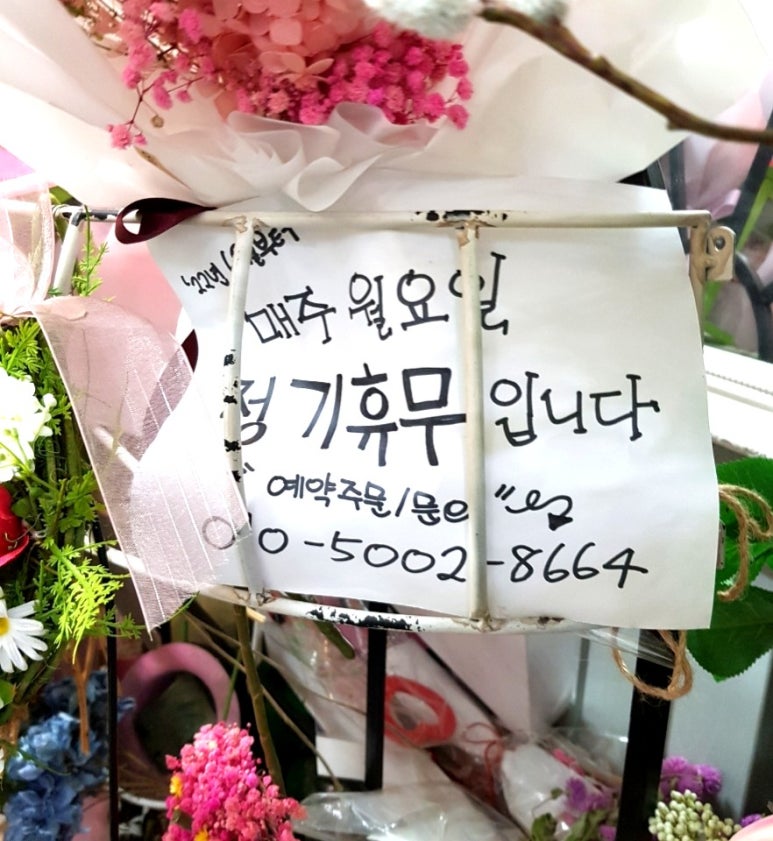 '22년 1월부터
매주 월요일
정기휴무 입니다
예약주문/문의
010-5002-8664